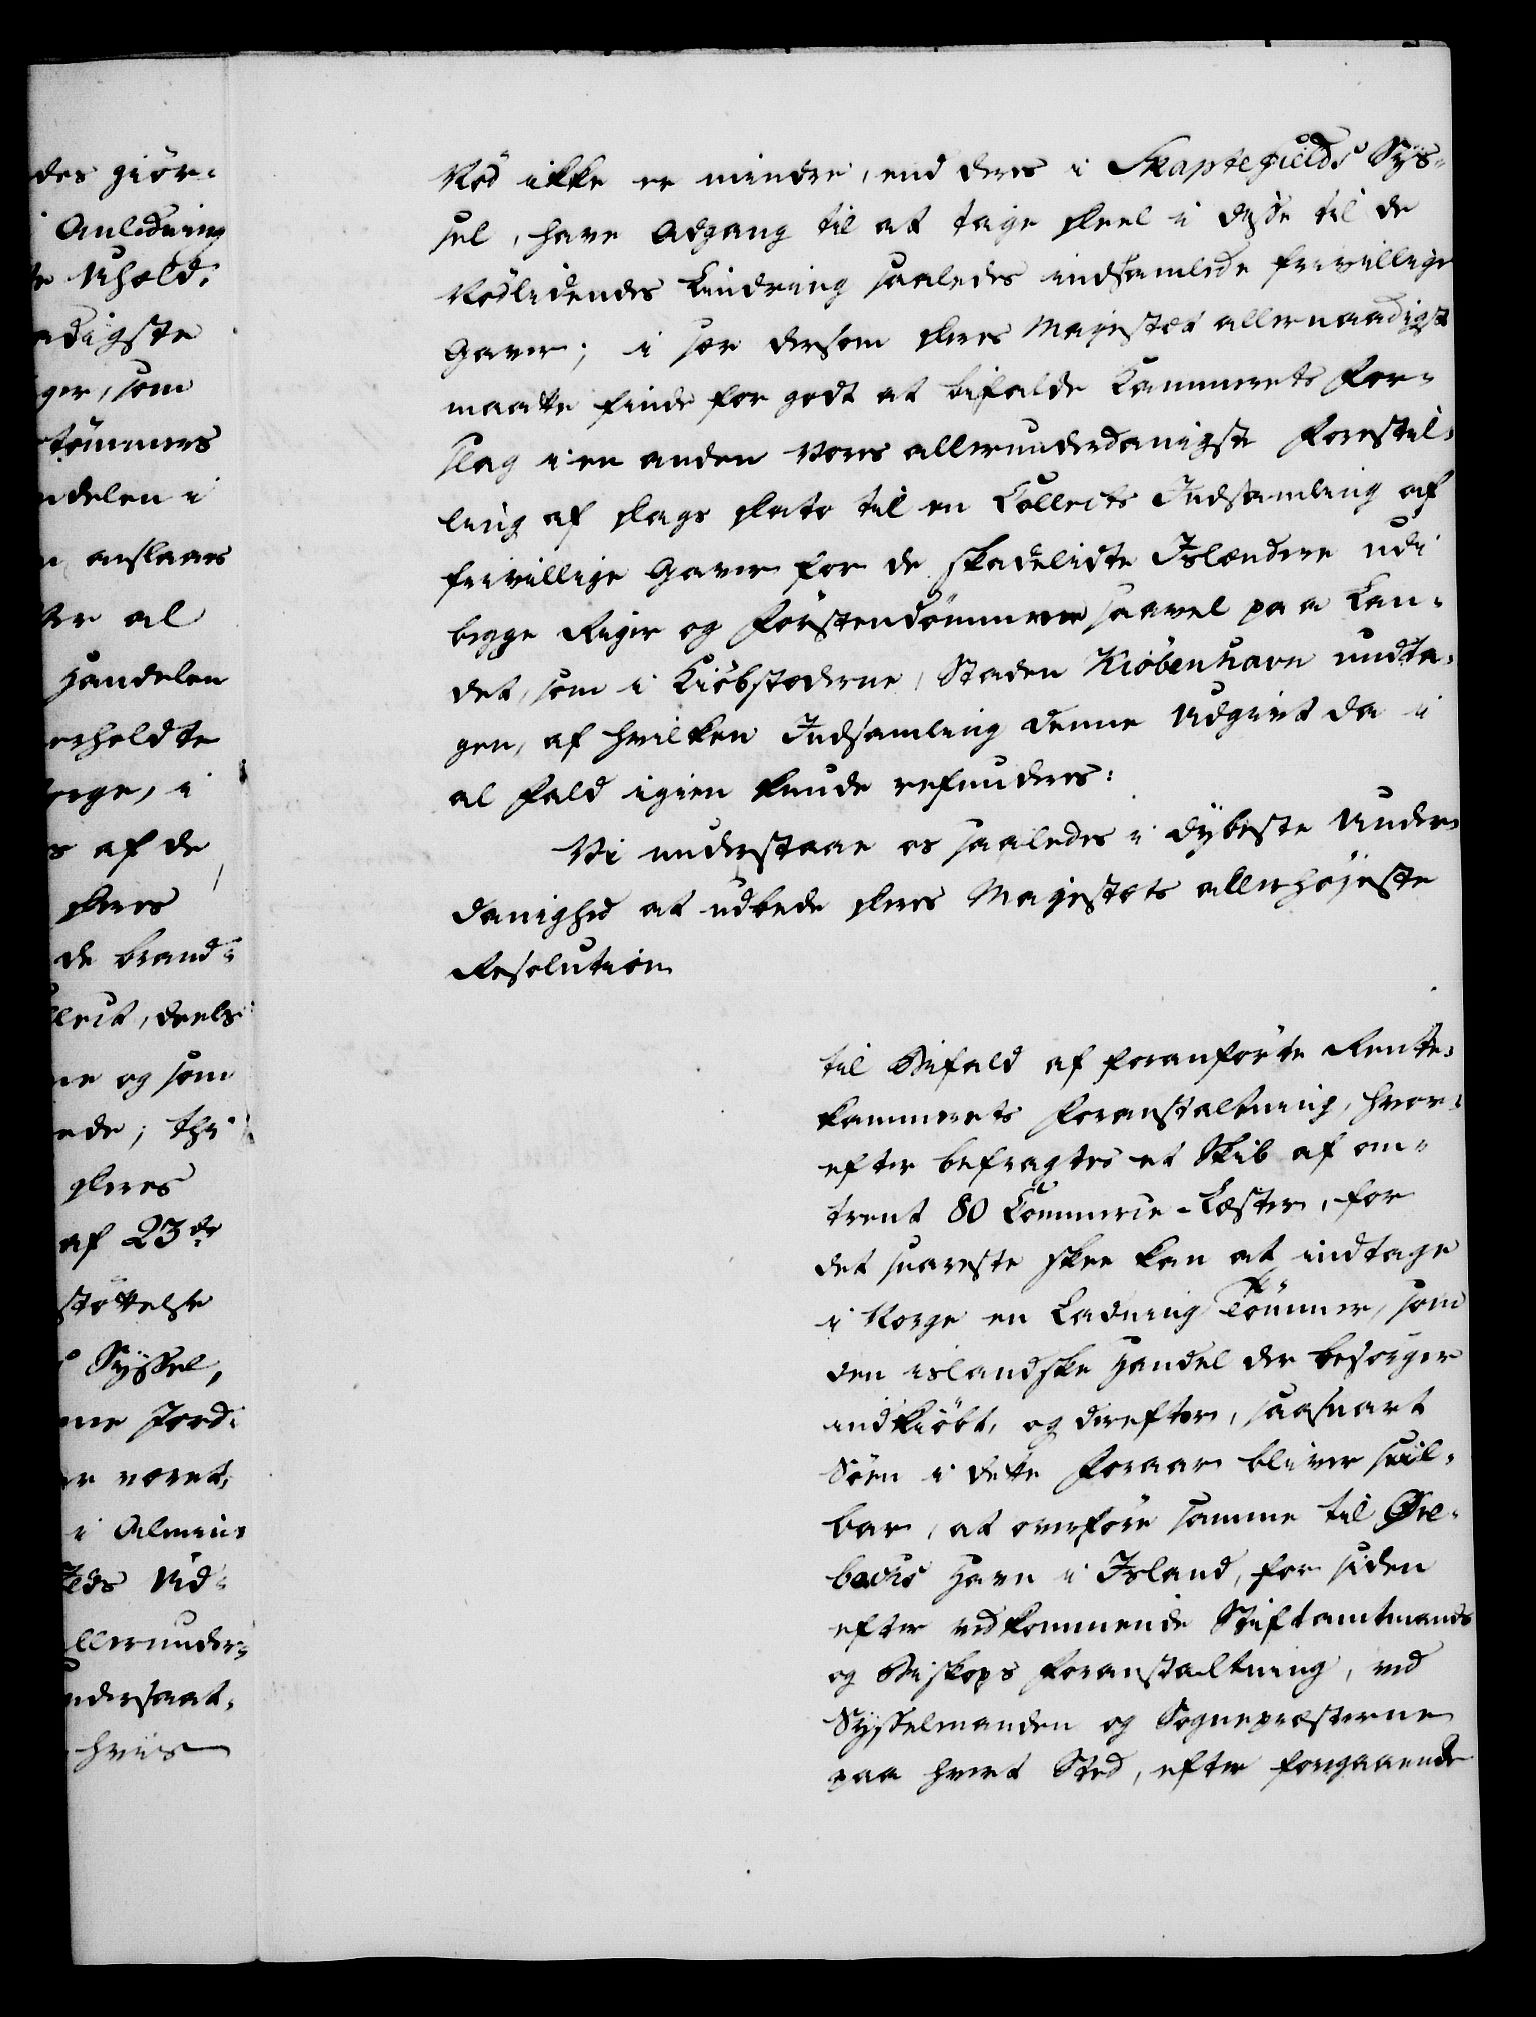 des giör-
Anledning
Uhold.
adigste
ger, som
tömmers
ndelen i
anslaaes
er al
Handelen
erholdte
orge, i
s af de
Deres
de brand-
llect, deels
ne og som
ede; thi
Deres
af 23de
støttelse
Syssel,
ne Jord-
er været,
i Almin-
Ud-
llerunder-
ndersaat-
hvis
Nöd ikke er mindre, end deres i Skaptefields Sys-
sel, have Adgang til at tage Deel i disse til de
Nödlidendes Lindring saaledes indsamlede frivillige
Gaver; i sær dersom Deres Majestæt allernaadigst
maatte finde for godt at bifalde Kammerets For-
slag i en anden Vores allerunderdanigste Forestil-
ling af Dags Dato til en Collects Indsamling af
frivillige Gaver for de skadelidte Islændere udi
begge Riger og Förstendömmerne saavel paa Lan-
det, som i Kiöbstæderne, Staden Kiöbenhavn undta-
gen, af hvilken Indsamling denne Udgivt da i
al Fald igien kunde refunderes:
Vi understaae os saaledes i dybeste Under-
danighed at udbede Deres Majestæts allerhöjeste
Resolution
til Bifald af foranförte Rente-
kammerets Foranstaltning, hvor-
efter befragtes et Skib af om-
trent 80 Commerce-Læster, for
det snareste skee kan at indtage
i Norge en Ladning Tömmer, som
den islandske Handel der besörger
indkiöbt, og derefter, saasnart
Söen i dette Foraar bliver seil-
bar, at overföre samme til Øre-
backs Havn i Island, for siden
efter vedkommende Stiftamtmands
og Biskops Foranstaltning, ved
Sysselmanden og Sognepræsterne
paa hvert Sted, efter foregaaende